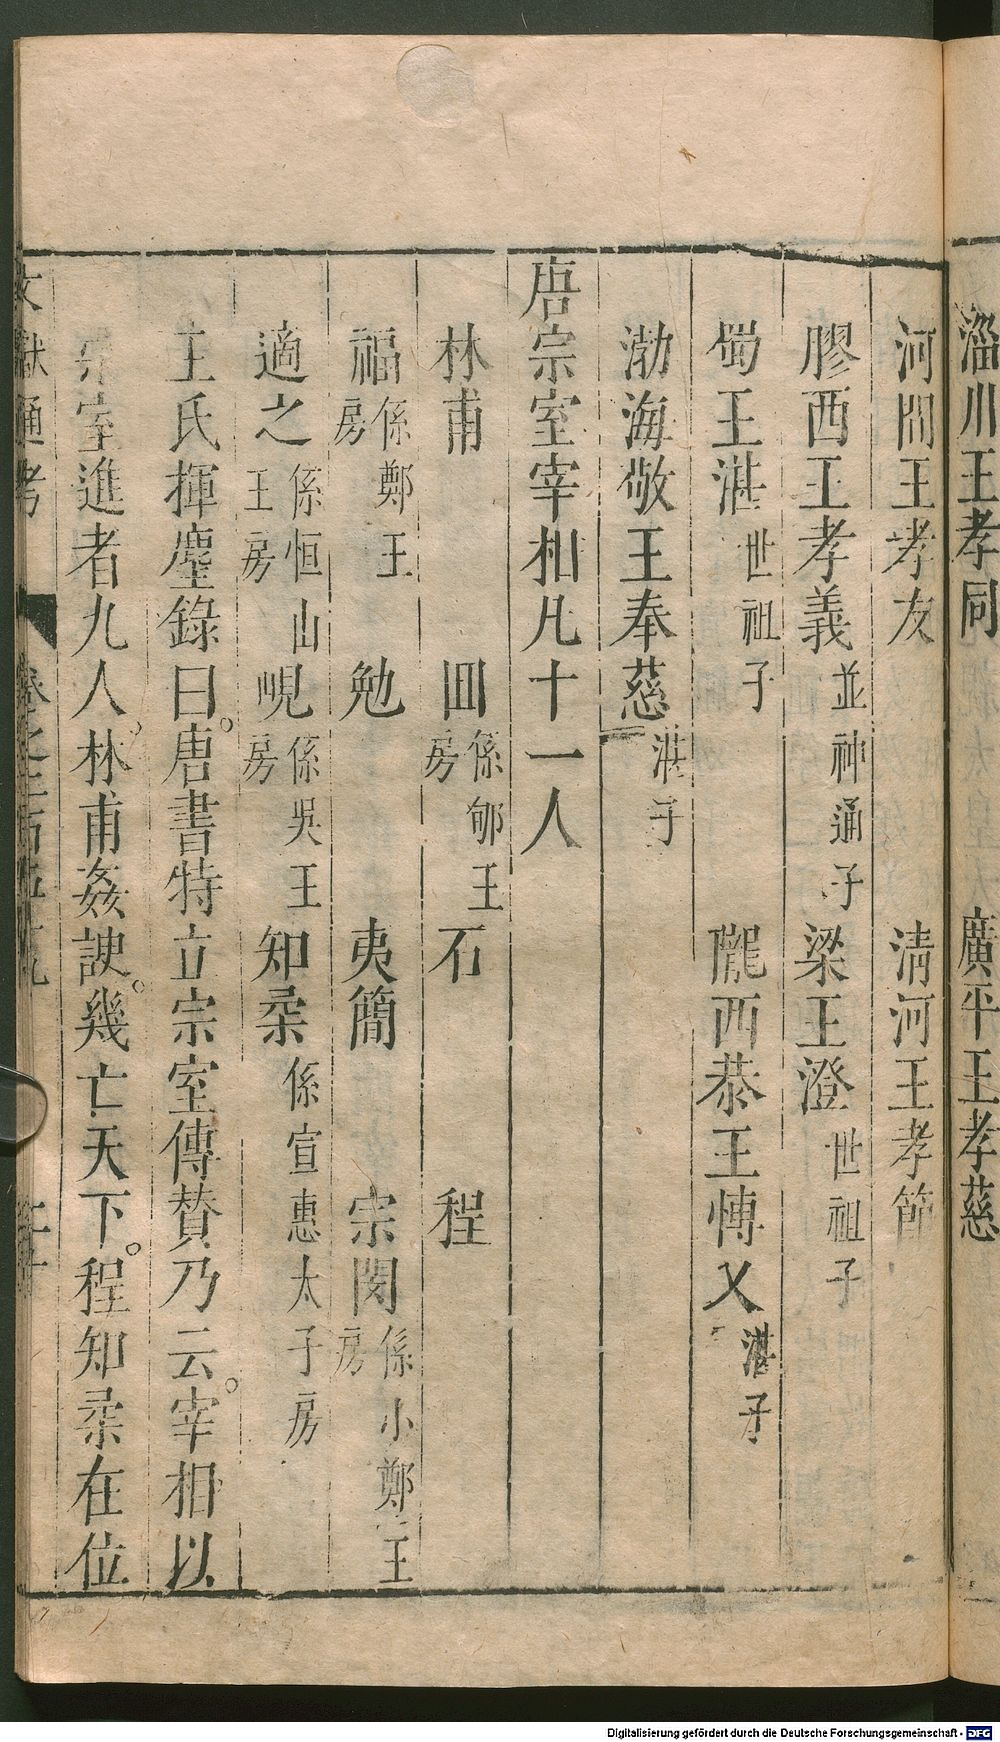 淄川王孝同　廣平王孝慈
河間王孝友　清河王孝節
膠西王孝義並神通子　梁王澄世祖子
蜀王湛世祖子　隴西恭王博乂湛子
渤海敬王奉慈湛子
唐宗室宰相凡十一人
林甫　回係郇王房　石　程
福係鄭王房　勉　夷簡　宗閔係小鄭王房
適之係恒山王房　峴係吳王房　知柔係宣惠太子房
王氏揮麈錄曰唐書特立宗室傳贊乃云宰相以
宗室進者九人林甫姦諛幾亡天下程知柔在位
文獻通考　卷之二百五十九
Digitalisierung gefördert durch die Deutsche Forschungsgemeinschaft - DFG